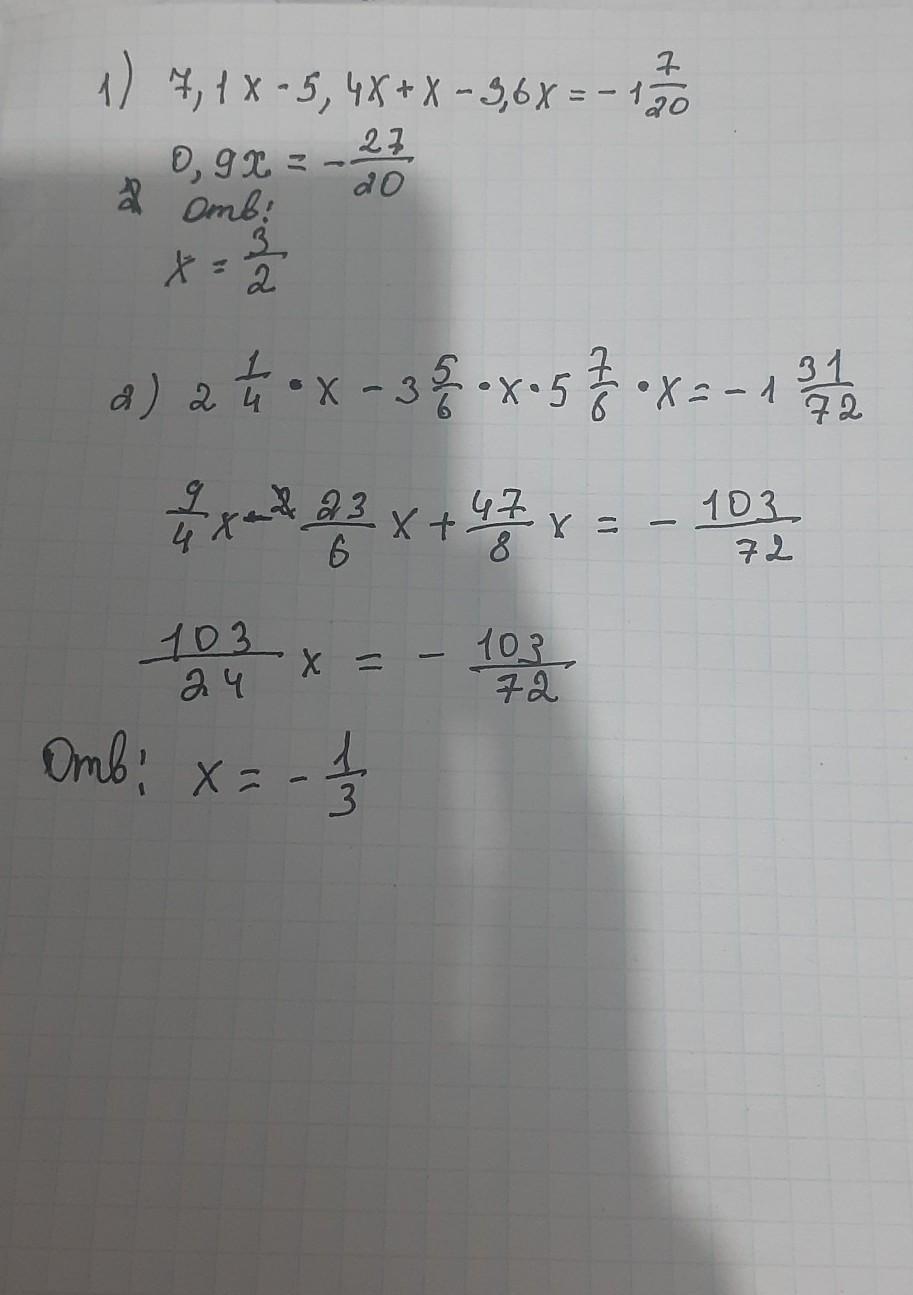 1) 7,1x - 5,4x + x - 3,6x = -1 7/20
0,9x = - 27/20
Отв:
x = 3/2
2) 2 1/4 · x - 3 5/6 · x · 5 7/8 · x = -1 31/72
9/4 x - 23/6 x + 47/8 x = - 103/72
103/24 x = - 103/72
Отв: x = - 1/3